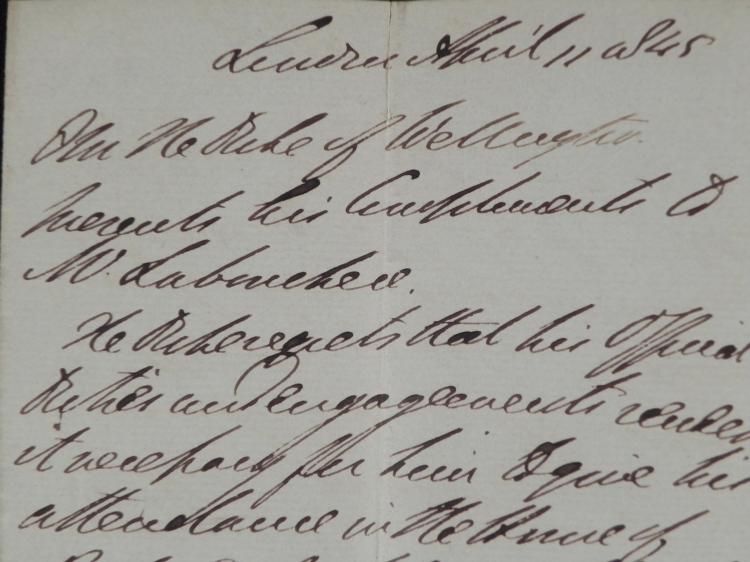 London April 11 1845
F M The Duke of Wellington
presents his Compliments to
Mr. Labouchere.
The Duke regrets that his Official
Duties and engagements render
it necessary for him to give his
attendance in the House of